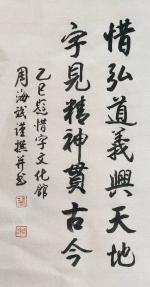 惜弘道義興天地
字見精神貫古今
乙巳題惜字文化館
周海斌謹撰并書